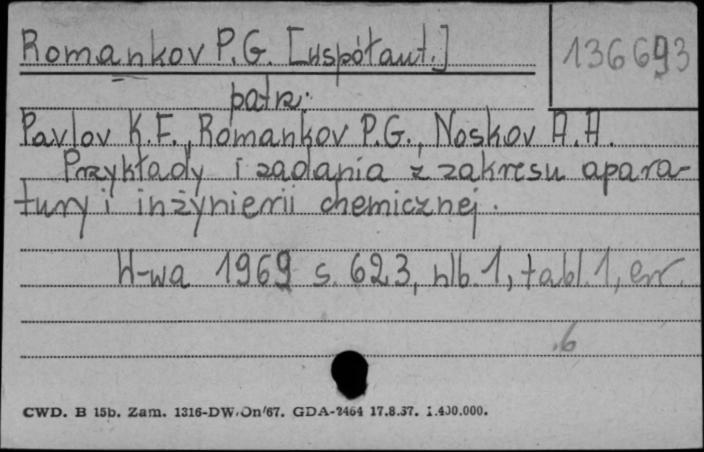 Romankov P.G. [współaut.]
136693
patrz:
Pavlov K.F., Romankov P.G., Noskov A.A.
Przykłady i zadania z zakresu apara-
tury i inżynierii chemicznej.
W-wa 1969 s. 623, nlb. 1, tabl. 1, err.
.6
CWD. B 15b. Zam. 1316-DW/On/67. GDA-2464 17.8.67. 1.400.000.